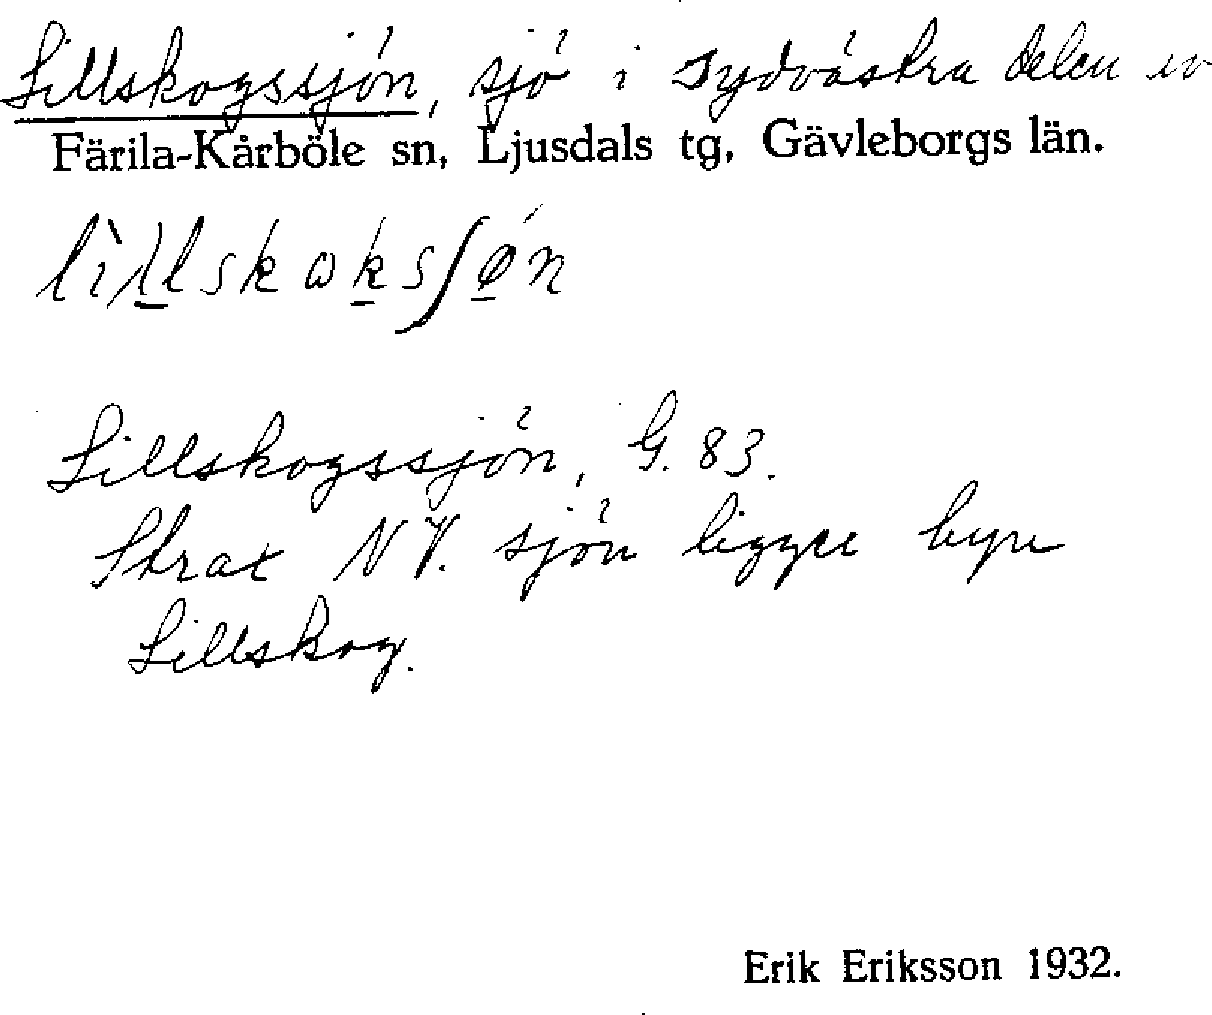 Lillskogssjön, sjö i sydvästra delen av
Färila-Kårböle sn, Ljusdals tg, Gävleborgs län.
lìllskɷksʃǿn
Lillskogssjön, G. 83.
Strax NV. sjön ligger byn
Lillskog.
Erik Eriksson 1932.